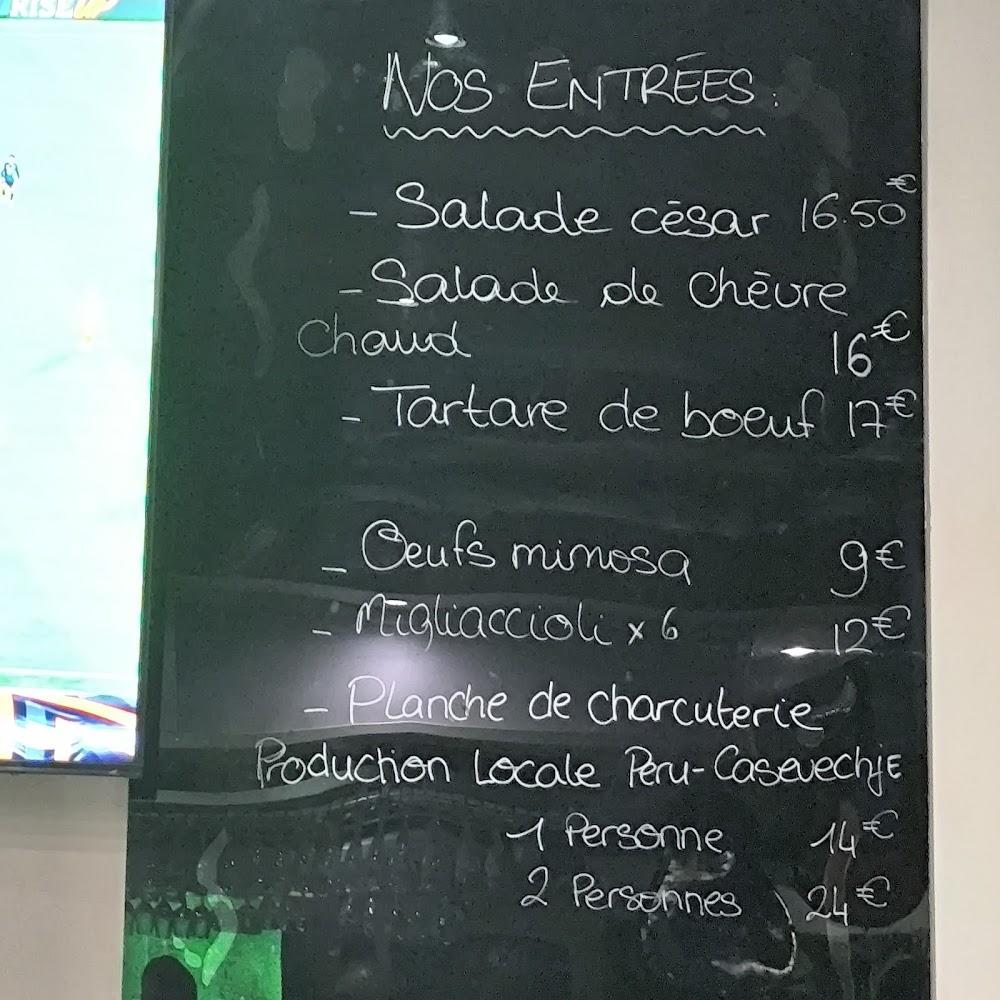 RISE UP
NOS ENTRÉES:
- Salade césar 16.50€
- Salade de chèvre
chaud 16€
- Tartare de boeuf 17€
- Oeufs mimosa 9€
- Migliaccioli x 6 12€
- Planche de charcuterie
Production Locale Peru-Casevechje
1 Personne 14€
2 Personnes 24€